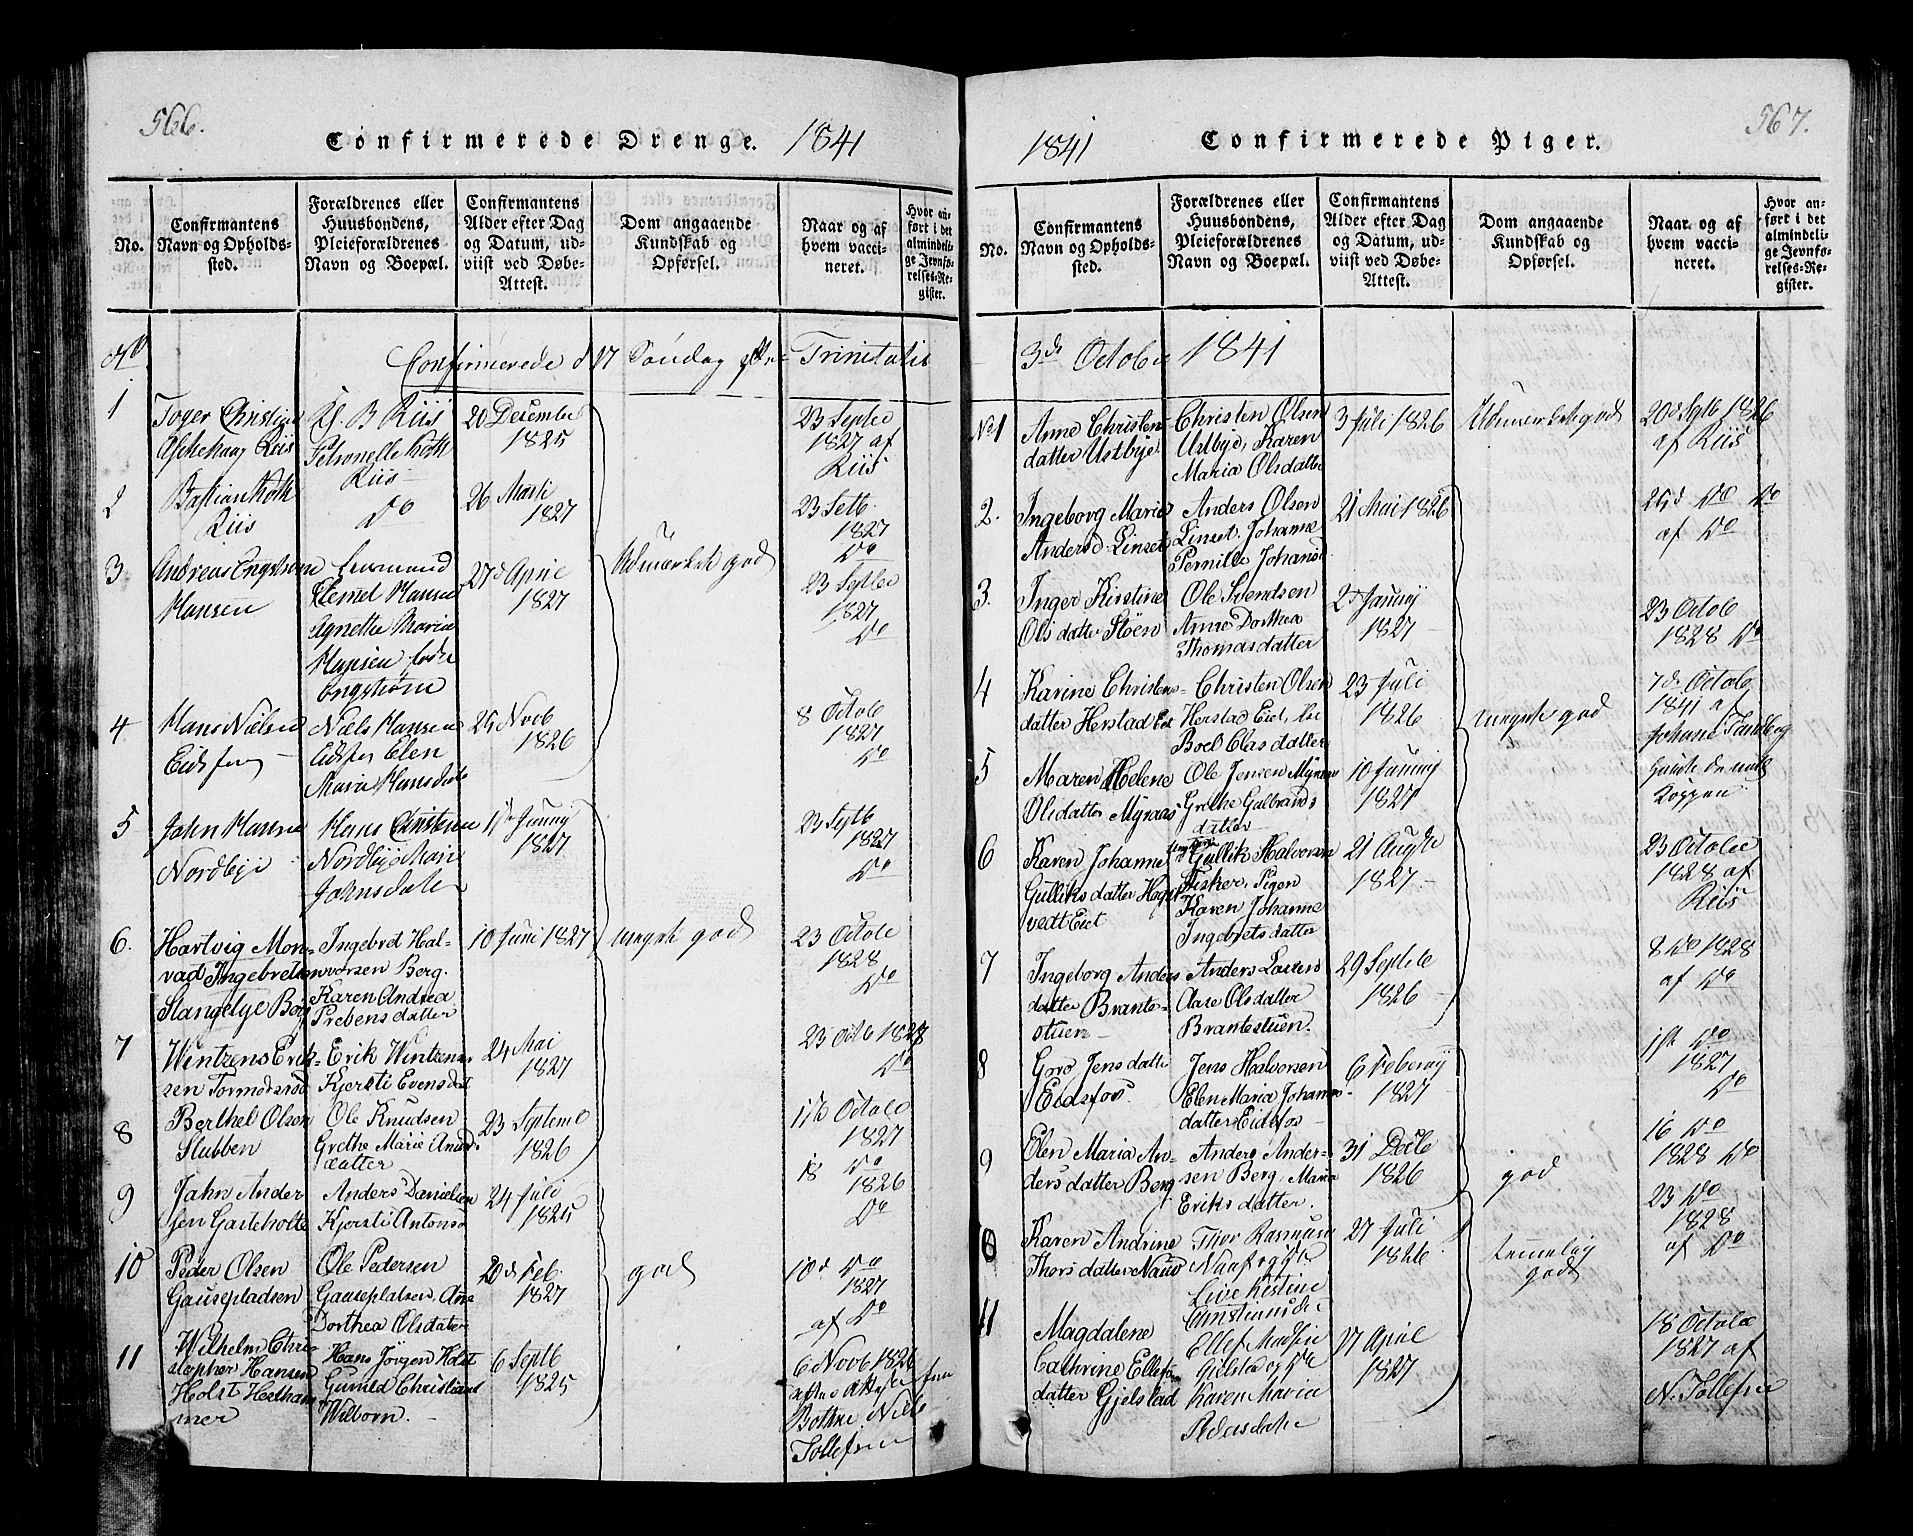 566.
Confirmerede Drenge. 1841
No.
Confirmantens Navn og Opholdssted.
Forældrenes eller Huusbondens, Pleieforældrenes Navn og Boepæl.
Confirmantens Alder efter Dag og Datum, udviist ved Døbe-Attest.
Dom angaaende Kundskab og Opførsel.
Naar og af hvem vaccineret.
Hvor anført i det almindelige Jevnførelses-Register.
Confirmerede d 17 Søndag Trinitatis
1
Christian Riis
B Riis
Petronelle Koth
Riis
20 December
1825
23 Septbr
1827 af
Riis
2
Bastian Koth
Riis
Do
26 Marti
1827
23 Setb.
1827
Do
3
Andreas Engstrøm
Hansen
Hansen
Agnethe Maria
Hansen fød
Engstrøm
27d April
1827
Udmærket god
23 Septbr
1827
Do
4
Hans Nielsen
Eidsfos
Niels Hansen
Eidsfos Elen
Maria Hansdatr
25 Novb
1826
8 Octobr
1827
Do
5
John Hansen
Nordbye
Hans Christensen
Nordbye Mari
Johnsdatr
Januarj
1827
23 Septb
1827
Do
6.
Hartvig Mon-
vad Ingebretsen
Slangelye Berg
Ingebret Hal-
vorsen Berg.
Karen Andrea
Prebensdatter
10 Juni 1827
meget god
23 Octobr
1828
Do
7
Wintzens Erik-
sen Tormodsrød
Erik Wintzens
Kjersti Evensdat
24 Mai
1827
23 Octb 1827
Do
8
Berthel Olsen
Slubben
Ole Knudsen
Grethe Marie Anders-
datter
23 Septembr
1826
11te Octobr
1827
9
John Ander
sen Gasteholte
Anders Danielsen
Kjersti Antonsd
24 Juli
1825
18 Do
1826
Do
10
Peder Olsen
Gausepladsen
Ole Pedersen
Gausepladsen, Ane
Dorthea Olsdater
20d Feb.
1827
god
10d Do
1827
af Do
11
Wilhelm Chri-
stopher Hansen
Holst Heetham-
mer
Hans Jörgen Holst
Gunild Christians
Wilborn.
6 Septb
1825
6 Novb 1826
Attest fra
Bothne Nils
Tollefsen
567.
1841 Confirmerede Piger.
No.
Confirmantens Navn og Opholdssted.
Forældrenes eller Huusbondens, Pleieforældrenes Navn og Boepæl.
Confirmantens Alder efter Dag og Datum, udviist ved Døbe-Attest.
Dom angaaende Kundskab og Opførsel.
Naar og af hvem vaccineret.
Hvor anført i det almindelige Jevnførelses-Register.
3de October 1841
No 1
Anne Christen-
datter Ustbye
Christen Olsen
Ustbye, Karen
Maria Olsdatter
3 Juli 1826
Udmærket god
20d Sptb 1826
af Riis
2.
Ingeborg Marie
Andersd. Linset
Anders Olsen
Linset. Johanne
Pernille Johansd
21 Mai 1826
25d Do Do
af Do
3.
Inger Kirstine
Olsdatter Støen
Ole Svendsen
Anne Dorthea
Thomasdatter
2d Januarj
1827
23 Octobr
1828 Do
4
Karine Christens-
datter Herstad Eie
Christen Olsen
Herstad Eiet,
Boel Clasdatter
23 Juli
1826
meget god
7de Octobr
1841 af
Johane Sandberg
5
Maren Helene
Olsdatter Myraas
Ole Jensen Myraas
Grethe Gulbrands
datter
10 Januarj
1827
Koppen
6
Karen Johanne
Gulliksdatter
vedt Eiet
Gullik Halvorsen
Fisker, Pigen
Karen Johanne
Ingebretsdatter
21 Augste
1827
23 Octobr
1828 af
Riis
7
Ingeborg Anders
datter Brante-
stuen
Anders Larsen
Aase Olsdatter
Brantestuen.
29 Septbr
1826
8 Do 1828
af Do
8
Goro Jensdatter
Eidsfos.
Jens Halvorsen
Elen Maria Johanns-
datter Eidsfos
6 Feberarj
1827
11te Do
1827
Do
9
Elen Maria An-
dersdatter Berg
Anders Ander-
sen Berg, Maria
Eriksdatter.
31 Decbr
1826
god
16 Do
1828 Do
10
Karen Andrine
Thorsdatter
Thor Rasmusen
Live Kistine
Christiansdr
27 Juli
1826
temelig
god
23 Do
1828
af Do
11
Magdalene
Cathrine Ellefs
datter Gjelstad
Ellef Madsen
Gjelstad og
Karen Maria
Pedersdatr
17 April
1827
18 Octobr
1827 af
N. Tollefsen